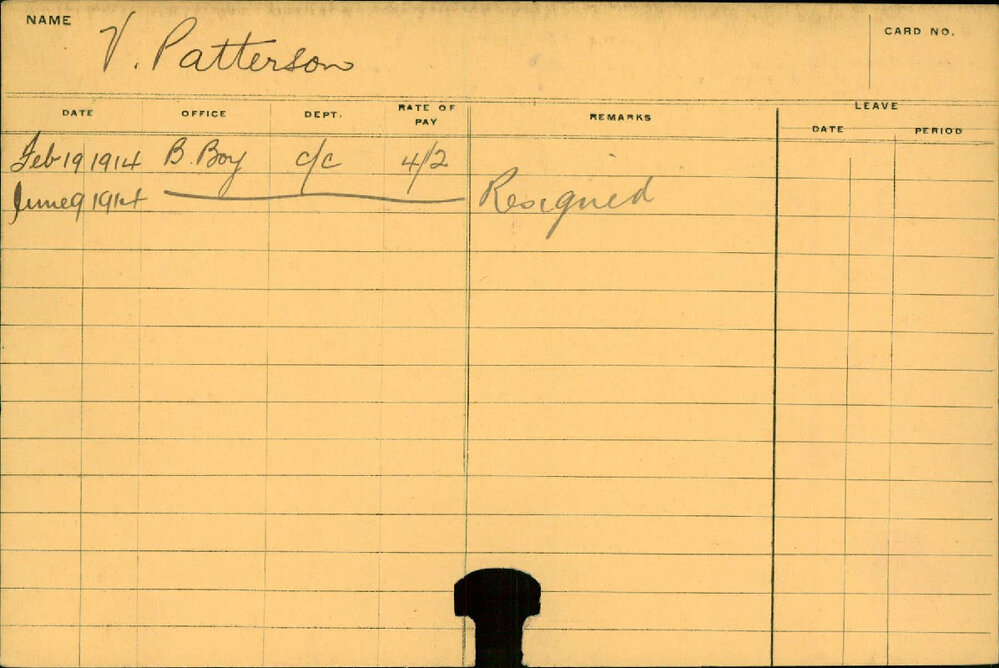 NAME V. Patterson CARD NO.
DATE OFFICE DEPT. RATE OF PAY REMARKS LEAVE DATE PERIOD
Feb 19 1914 B. Boy c/c 4/2
June 9 1914 Resigned